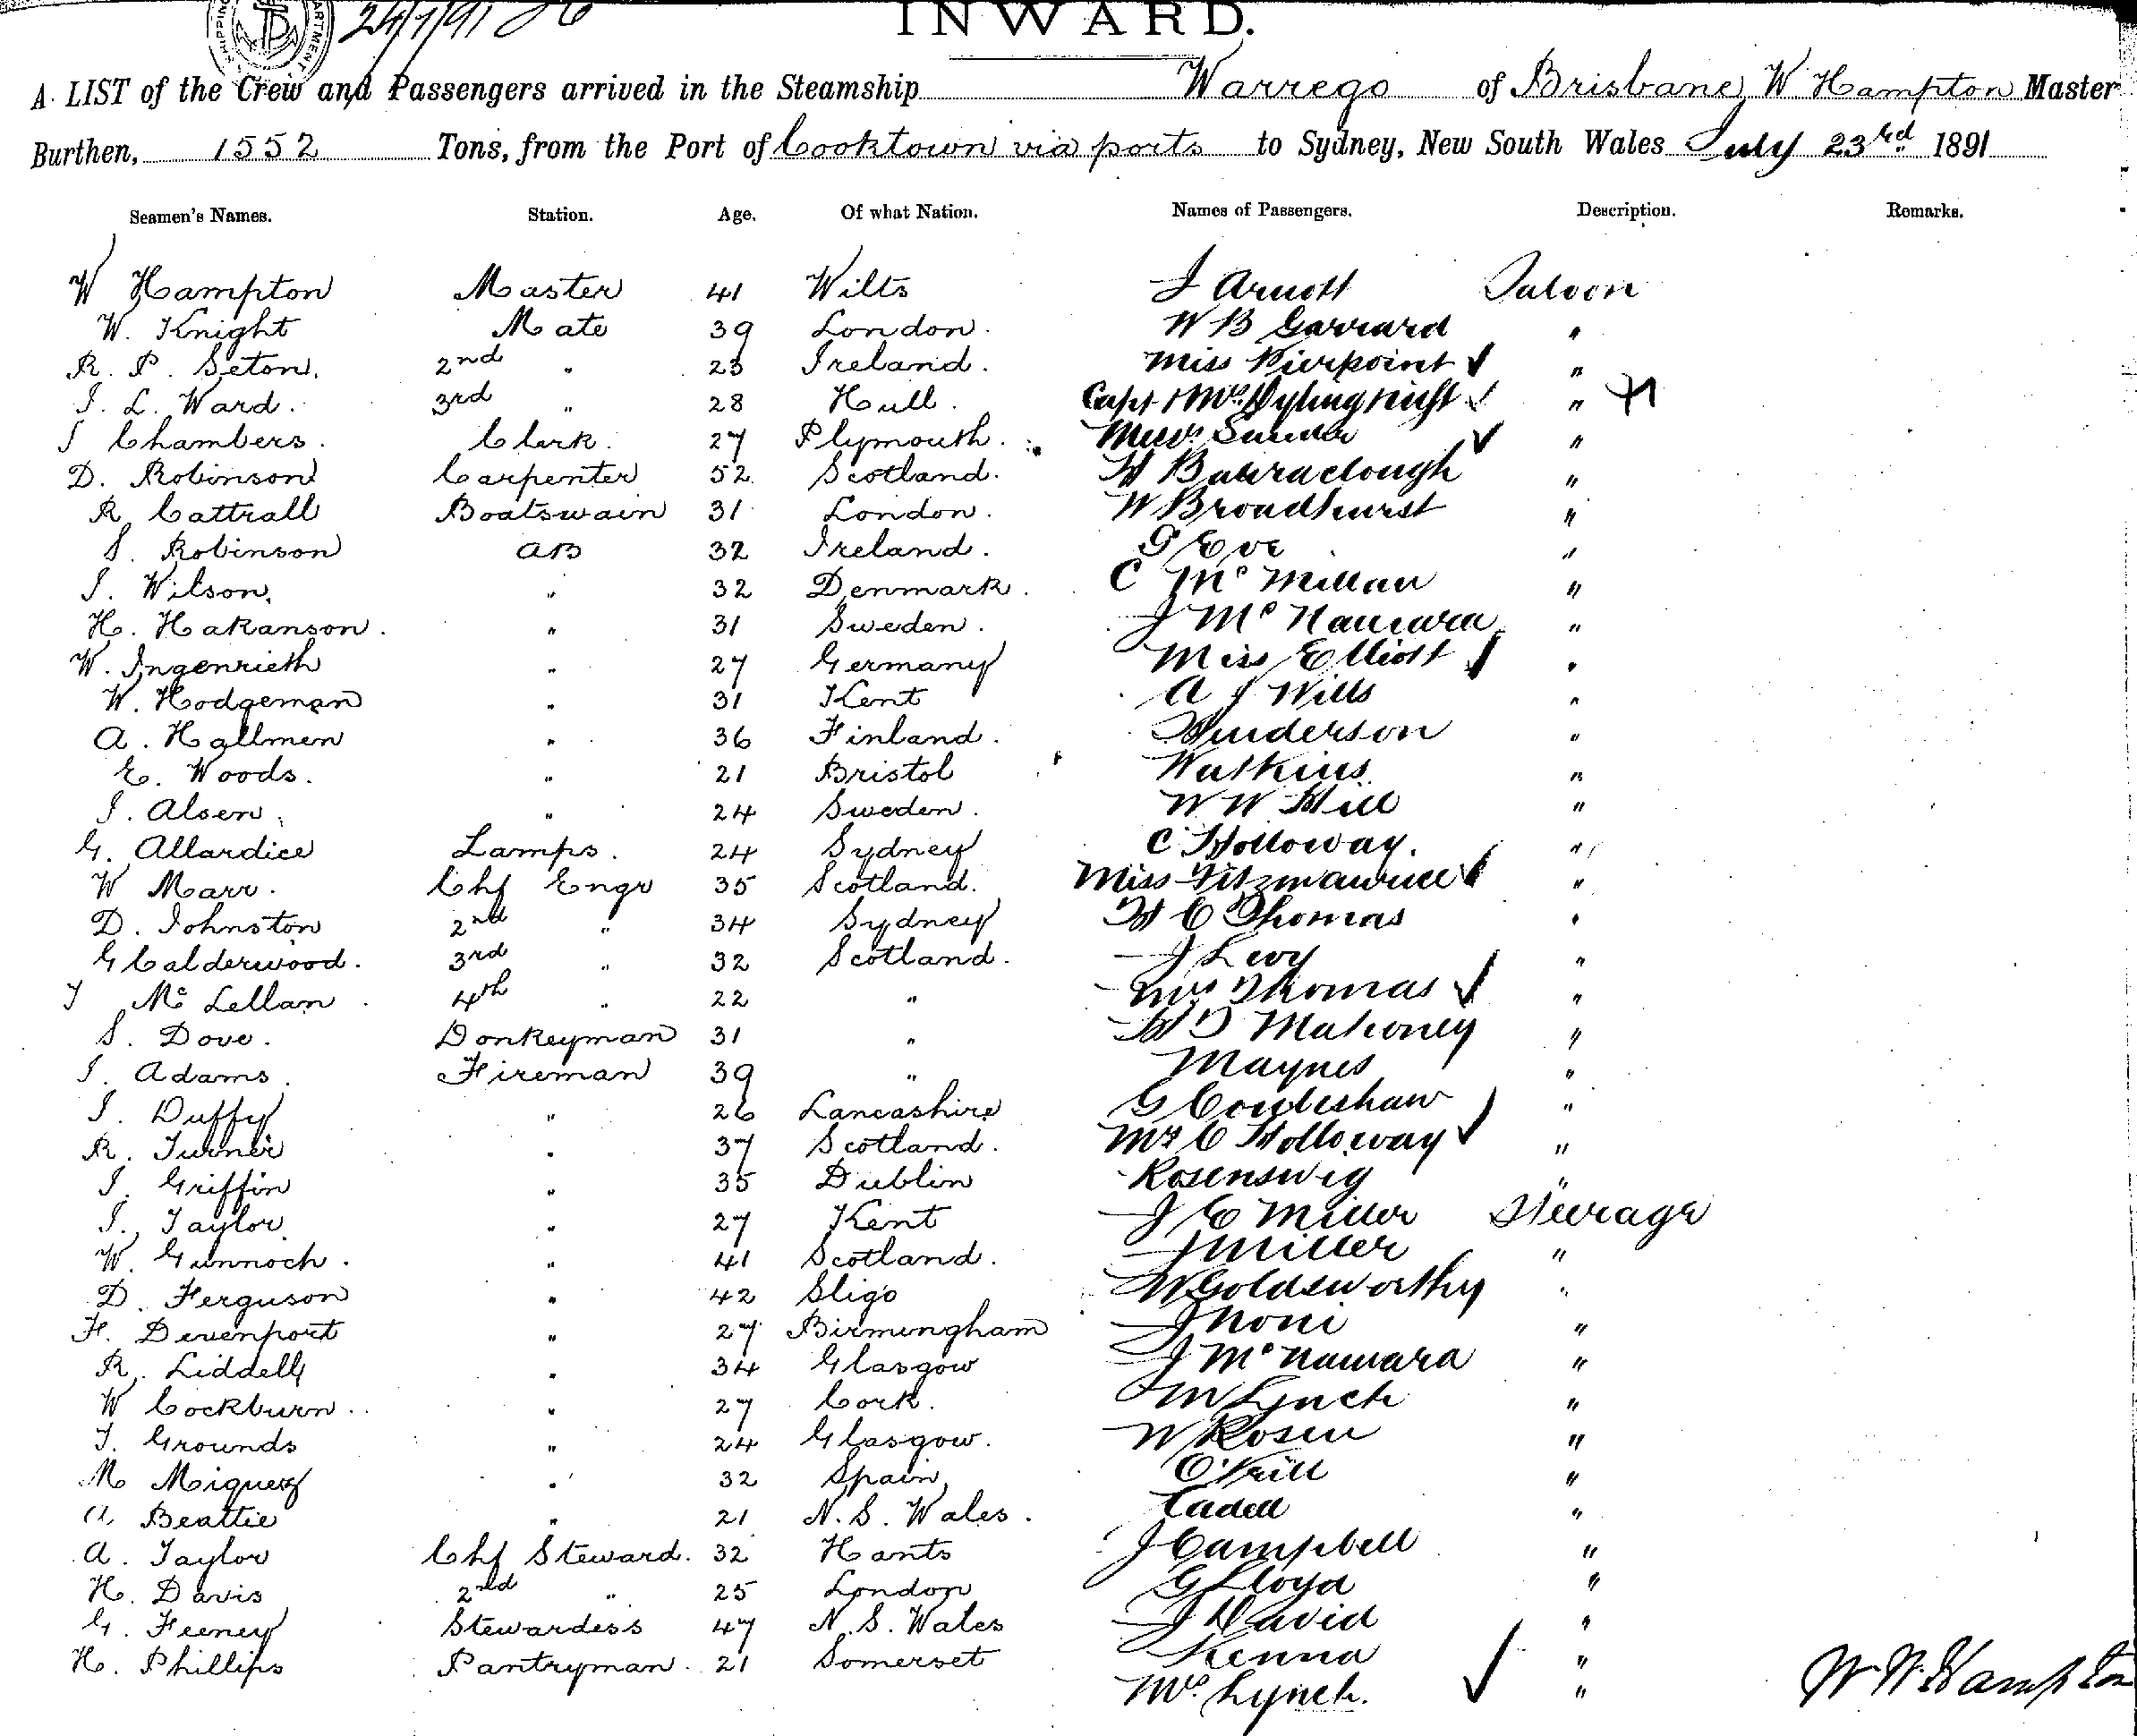 24/7/91
INWARD.
A LIST of the Crew and Passengers arrived in the Steamship Warrego of Brisbane, W Hampton Master
Burthen, 1552 Tons, from the Port of Cooktown via ports to Sydney, New South Wales July 23rd 1891
Seamen's Names. Station. Age. Of what Nation. Names of Passengers. Description. Remarks.
W Hampton Master 41 Wilts J Arnott Saloon
W. Knight Mate 39 London. W B Garrard "
R. P. Seton. 2nd " 23 Ireland. Miss Pierpoint "
J. L. Ward. 3rd " 28 Hull. Capt & Mrs "
J Chambers. Clerk. 27 Plymouth. "
D. Robinson Carpenter 52 Scotland. H Barraclough "
R Cattrall Boatswain 31 London. W Broadhurst "
S. Robinson AB 32 Ireland. G Eve "
J. Wilson. " 32 Denmark. C McMillan "
H. Hakanson. " 31 Sweden. J McNamara "
W. Ingenrieth " 27 Germany Miss Elliott "
W. Hodgeman " 31 Kent A J Wills "
A. Hallmen " 36 Finland. Henderson "
E. Woods. " 21 Bristol Watkins "
J. Alsen. " 24 Sweden. W W Hill "
G. Allardice Lamps. 24 Sydney C Holloway. "
W Marr. Chf Engr 35 Scotland. Miss Fitzmaurice "
D. Johnston 2nd " 34 Sydney H C Thomas "
G Calderwood. 3rd " 32 Scotland. J Levy "
J McLellan. 4th " 22 " Mrs Thomas "
S. Dove. Donkeyman 31 " H D Mahoney "
J. Adams. Fireman 39 " Maynes "
J. Duffy " 26 Lancashire G "
R. Turner " 37 Scotland. Mrs C Holloway "
J. Griffin " 35 Dublin Rosenswig "
J. Taylor " 27 Kent J E Miller Steerage
W. Gunnoch. " 41 Scotland. J Miller "
D. Ferguson " 42 Sligo W Goldsworthy "
H. Devenport " 27 Birmingham J Noni "
R. Liddell " 34 Glasgow J McNamara "
W Cockburn. " 27 Cork. M Lynch "
J. Grounds " 24 Glasgow. W Rosen "
M Miquez " 32 Spain O'Neill "
A. Beattie " 21 N. S. Wales. Cadell "
A. Taylor Chf Steward. 32 Hants J Campbell "
H. Davis 2nd " 25 London G Lloyd "
G. Feeney Stewardess 47 N. S. Wales J David "
H. Phillips Pantryman. 21 Somerset Kenna "
Mrs Lynch. "
W. W. Hampton